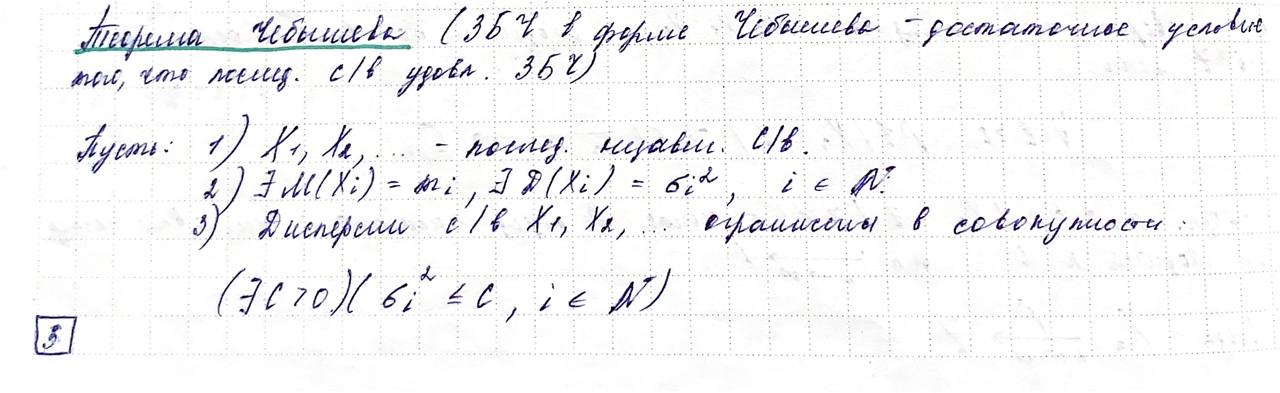 Теорема Чебышева (ЗБЧ в форме Чебышева - достаточное условие
того, что послед. с/в удовл. ЗБЧ)
Пусть: 1) X1, X2, ... - послед. независ. с/в.
2) ∃ M(Xi) = mi, ∃ D(Xi) = σi², i ∈ N.
3) Дисперсии с/в X1, X2, ... ограничены в совокупности:
(∃C>0)(σi² ≤ C, i ∈ N)
3.